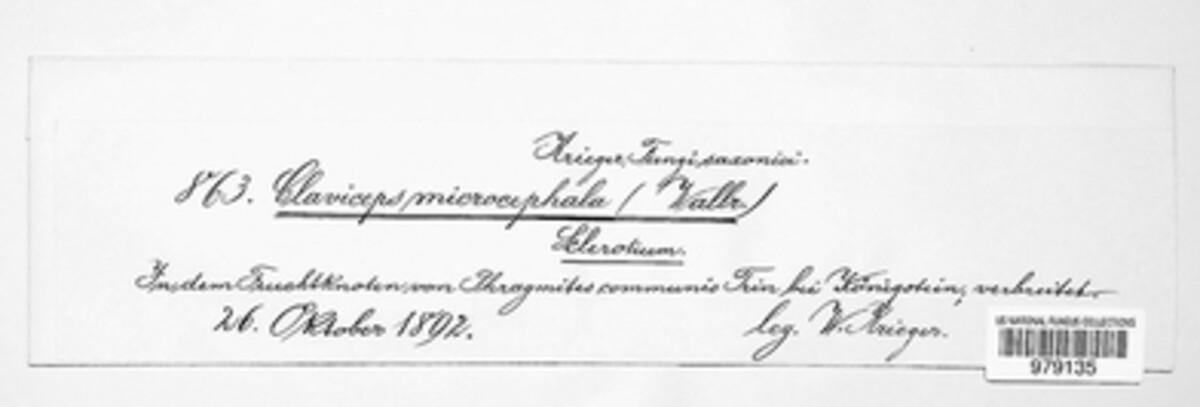 Krieger, Fungi saxonici.
863. Claviceps microcephala (Wallr.)
Sclerotium.
In dem Fruchtknoten von Phragmites communis Trin bei Königstein, verbreitet.
26. Oktober 1892. leg. W. Krieger.
US NATIONAL FUNGUS COLLECTIONS
979135